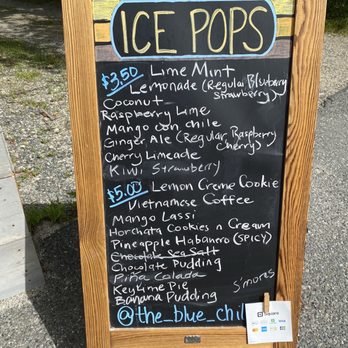 ICE POPS
$3.50 Lime Mint
Lemonade (Regular Blueberry
Strawberry)
Coconut
Raspberry Lime
Mango con chile
Ginger Ale (Regular Raspberry
Cherry)
Cherry Limeade
Kiwi Strawberry
$5.00 Lemon Creme Cookie
Vietnamese Coffee
Mango Lassi
Horchata Cookies n Cream
Pineapple Habanero (SPICY)
Chocolate Sea Salt
Chocolate Pudding
Piña Colada
S'mores
Key Lime Pie
Banana Pudding
@the_blue_chil
Square